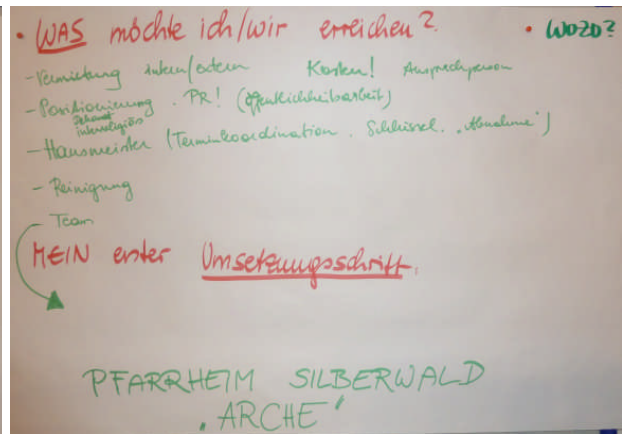 • WAS möchte ich/wir erreichen? • WOZU?
- Vermietung intern/extern Kosten! Ansprechperson
- Positionierung . PR! (Öffentlichkeitsarbeit)
Dekanat
interreligiös
- Hausmeister (Terminkoordination. Schlüssel. "Abnahme")
- Reinigung
- Team
MEIN erster Umsetzungsschritt.
PFARRHEIM SILBERWALD
"ARCHE"